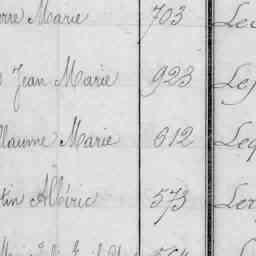 erre Marie 703 Lec
Jean Marie 923 Lej
llaume Marie 612 Leq
tin Albéric 573 Ler